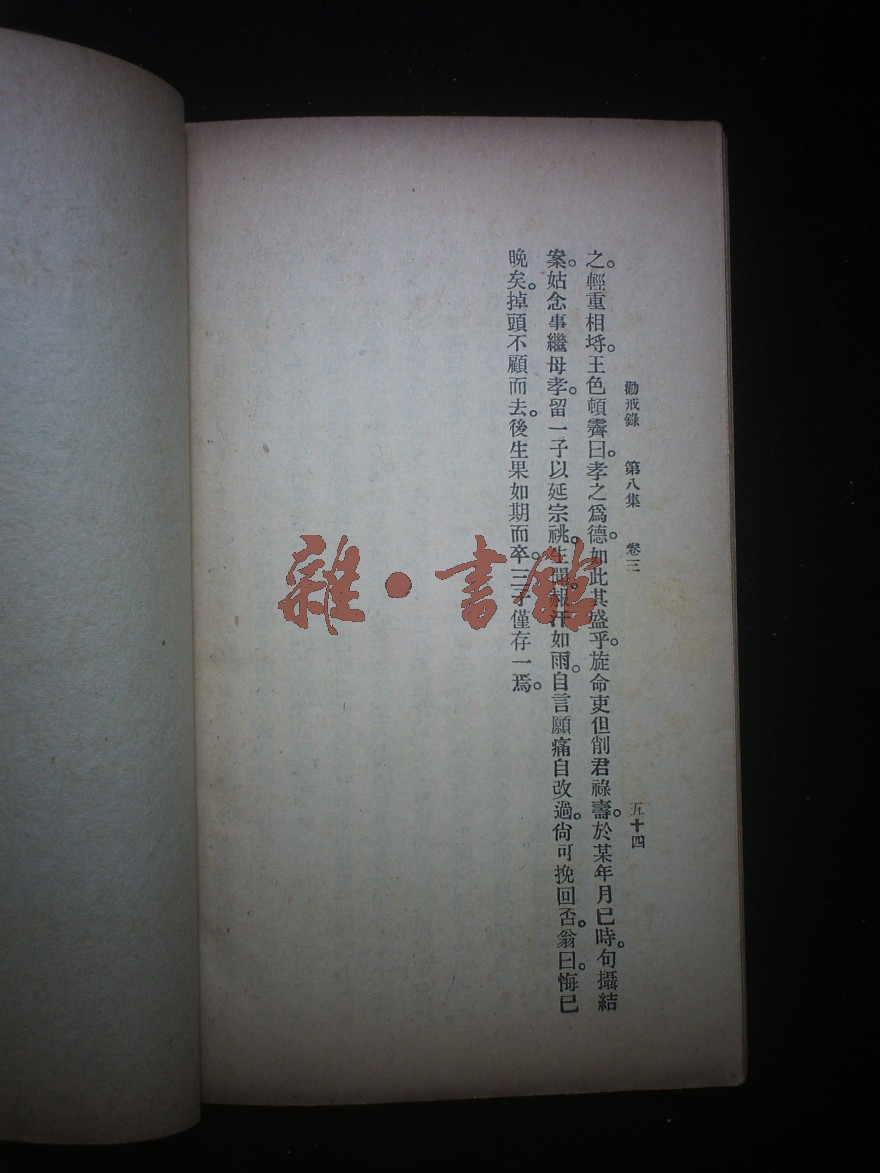 勸戒錄　第八集　卷三　五十四
之。輕重相埒。王色頓霽曰。孝之爲德。如此其盛乎。旋命吏但削君祿壽。於某年月巳時。句攝結
案。姑念事繼母孝。留一子以延宗祧。生聞。赧汗如雨。自言願痛自改過。尙可挽回否。翁曰。悔已
晚矣。掉頭不顧而去。後生果如期而卒。三子僅存一焉。
雜·書館